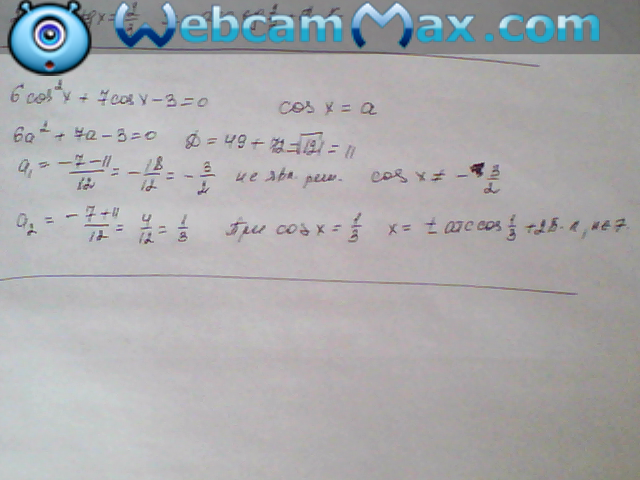 WebcamMax.com
6cos²x + 7cosx - 3 = 0 cos x = a
6a² + 7a - 3 = 0 D = 49 + 72 = √121 = 11
a₁ = -7-11/12 = -18/12 = -3/2 не явл. реш. cos x ≠ -3/2
a₂ = -7+11/12 = 4/12 = 1/3 При cos x = 1/3 x = ± arccos 1/3 + 2π·n, n∈Z.